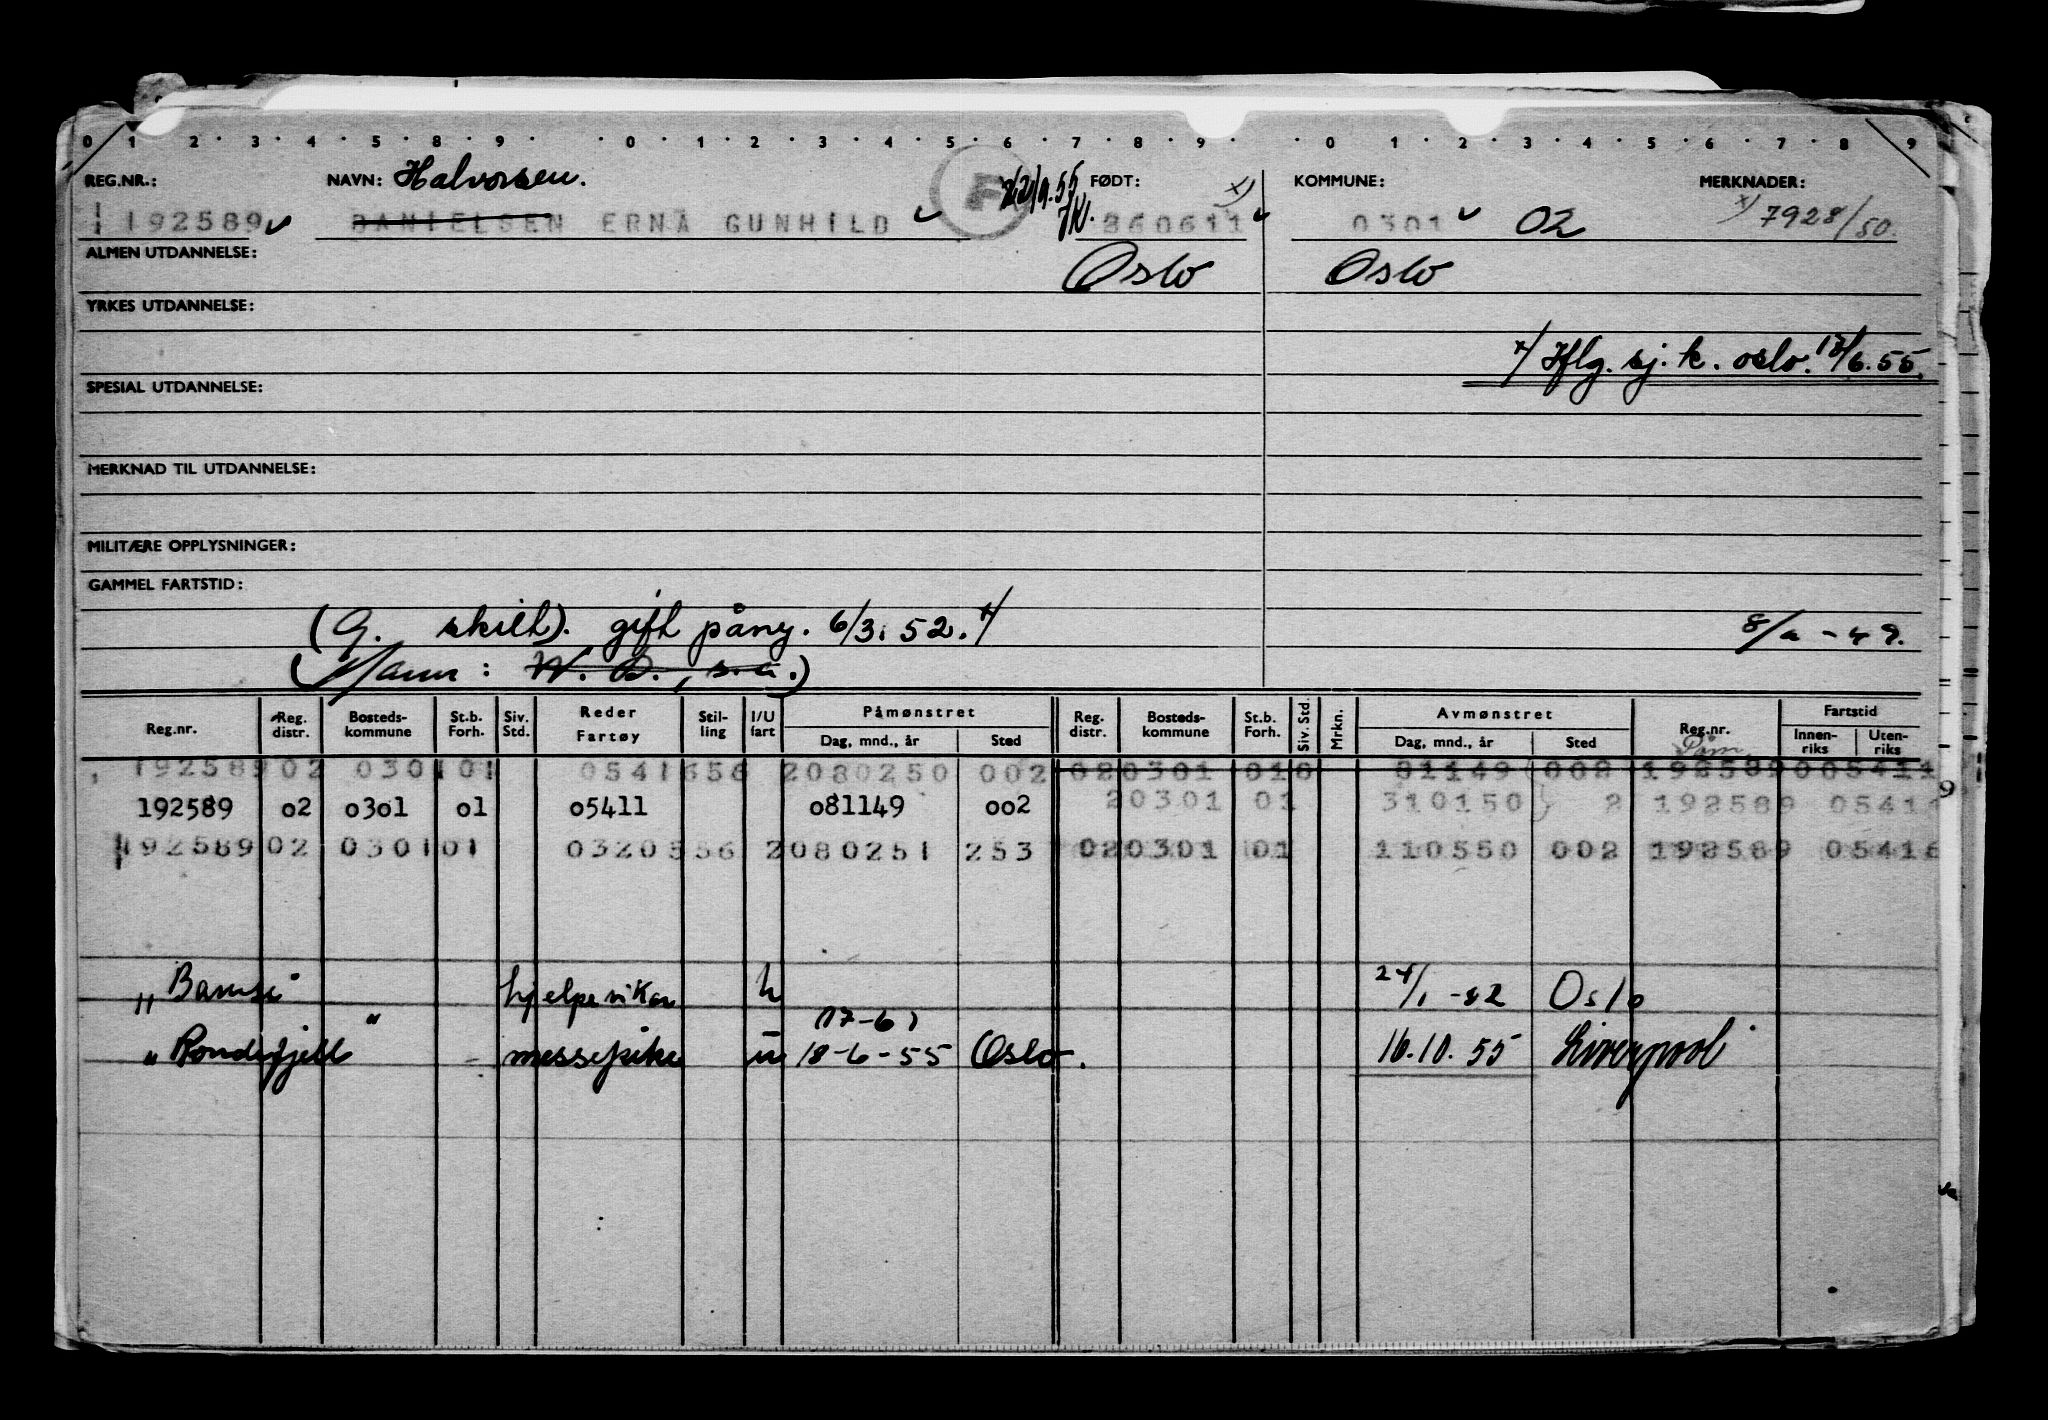 0 1 2 3 4 5 8 9 0 1 2 3 4 5 6 7 8 9 0 1 2 3 4 5 6 7 8 9
REG.NR.: NAVN: Halvorsen. F 9.55 FØDT: x) KOMMUNE: MERKNADER:
192589 DANIELSEN ERNA GUNHILD 260611 0301 02 x) 7928/50.
ALMEN UTDANNELSE: Oslo Oslo
YRKES UTDANNELSE:
x/ Iflg. sj. k. oslo. 13/6.55.
SPESIAL UTDANNELSE:
MERKNAD TIL UTDANNELSE:
MILITÆRE OPPLYSNINGER:
GAMMEL FARTSTID:
(G. skilt). gift påny. 6/3.52. x/ 8/ -49.
(Mann: W. D., s.a.)
Reg.nr. Reg. distr. Bosteds-kommune St.b. Forh. Siv. Std. Reder Fartøy Stil-ling I/U fart Påmønstret Dag, mnd., år Sted Reg. distr. Bosteds-kommune St.b. Forh. Siv. Std. Mrkn. Avmønstret Dag, mnd., år Sted Reg.nr. Påm. Fartstid Innen-riks Uten-riks
192589 02 0301 01 0541656 2080250 002 020301 010 81149 002 192589 005411
192589 02 0301 01 05411 081149 002 20301 01 310150 2 192589 05411 9
192589 02 0301 01 0320556 2080251 253 020301 01 110550 002 192589 05416
" Bamsi hjelpevikar h 24/1 -52 Oslo
(17-6)
" Rondefjell " - messepike u 18-6-55 Oslo. 16.10.55 Liverpool